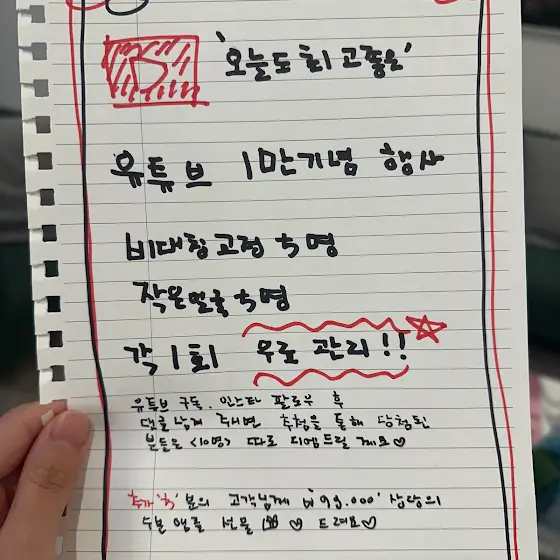 '오늘도 최고좋은'
유튜브 1만기념 행사
비대칭교정 5명
작은얼굴 5명
각 1회 무료 관리!!
유튜브 구독, 인스타 팔로우 후
댓글남겨 주시면 추첨을 통해 당첨된
분들은 <10명> 따로 디엠드릴게요♡
추가 '5' 분의 고객님께 ₩99.000' 상당의
수분앰플 선물 ♡ 드려요♡